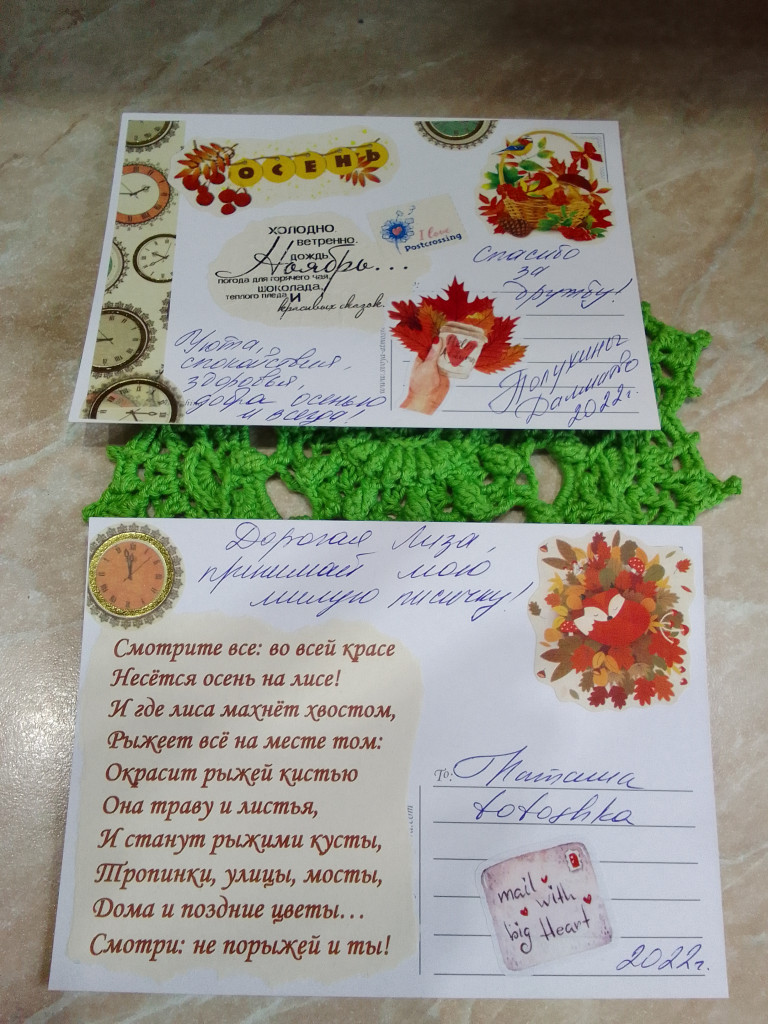 ОСЕНЬ
ХОЛОДНО
ветренно.
дождь
Ноябрь...
погода для горячего чая,
шоколада,
теплого пледа И
красивых сказок.
I love
Postcrossing
Спасибо
за
дружбу!
Уюта,
спокойствия,
здоровья,
добра осенью
и всегда!
2022г.
Дорогая Лиза,
принимай мою
милую лисичку!
Смотрите все: во всей красе
Несётся осень на лисе!
И где лиса махнёт хвостом,
Рыжеет всё на месте том:
Окрасит рыжей кистью
Она траву и листья,
И станут рыжими кусты,
Тропинки, улицы, мосты,
Дома и поздние цветы...
Смотри: не порыжей и ты!
To: Наташа
totoshka
mail
with
big Heart
2022г.